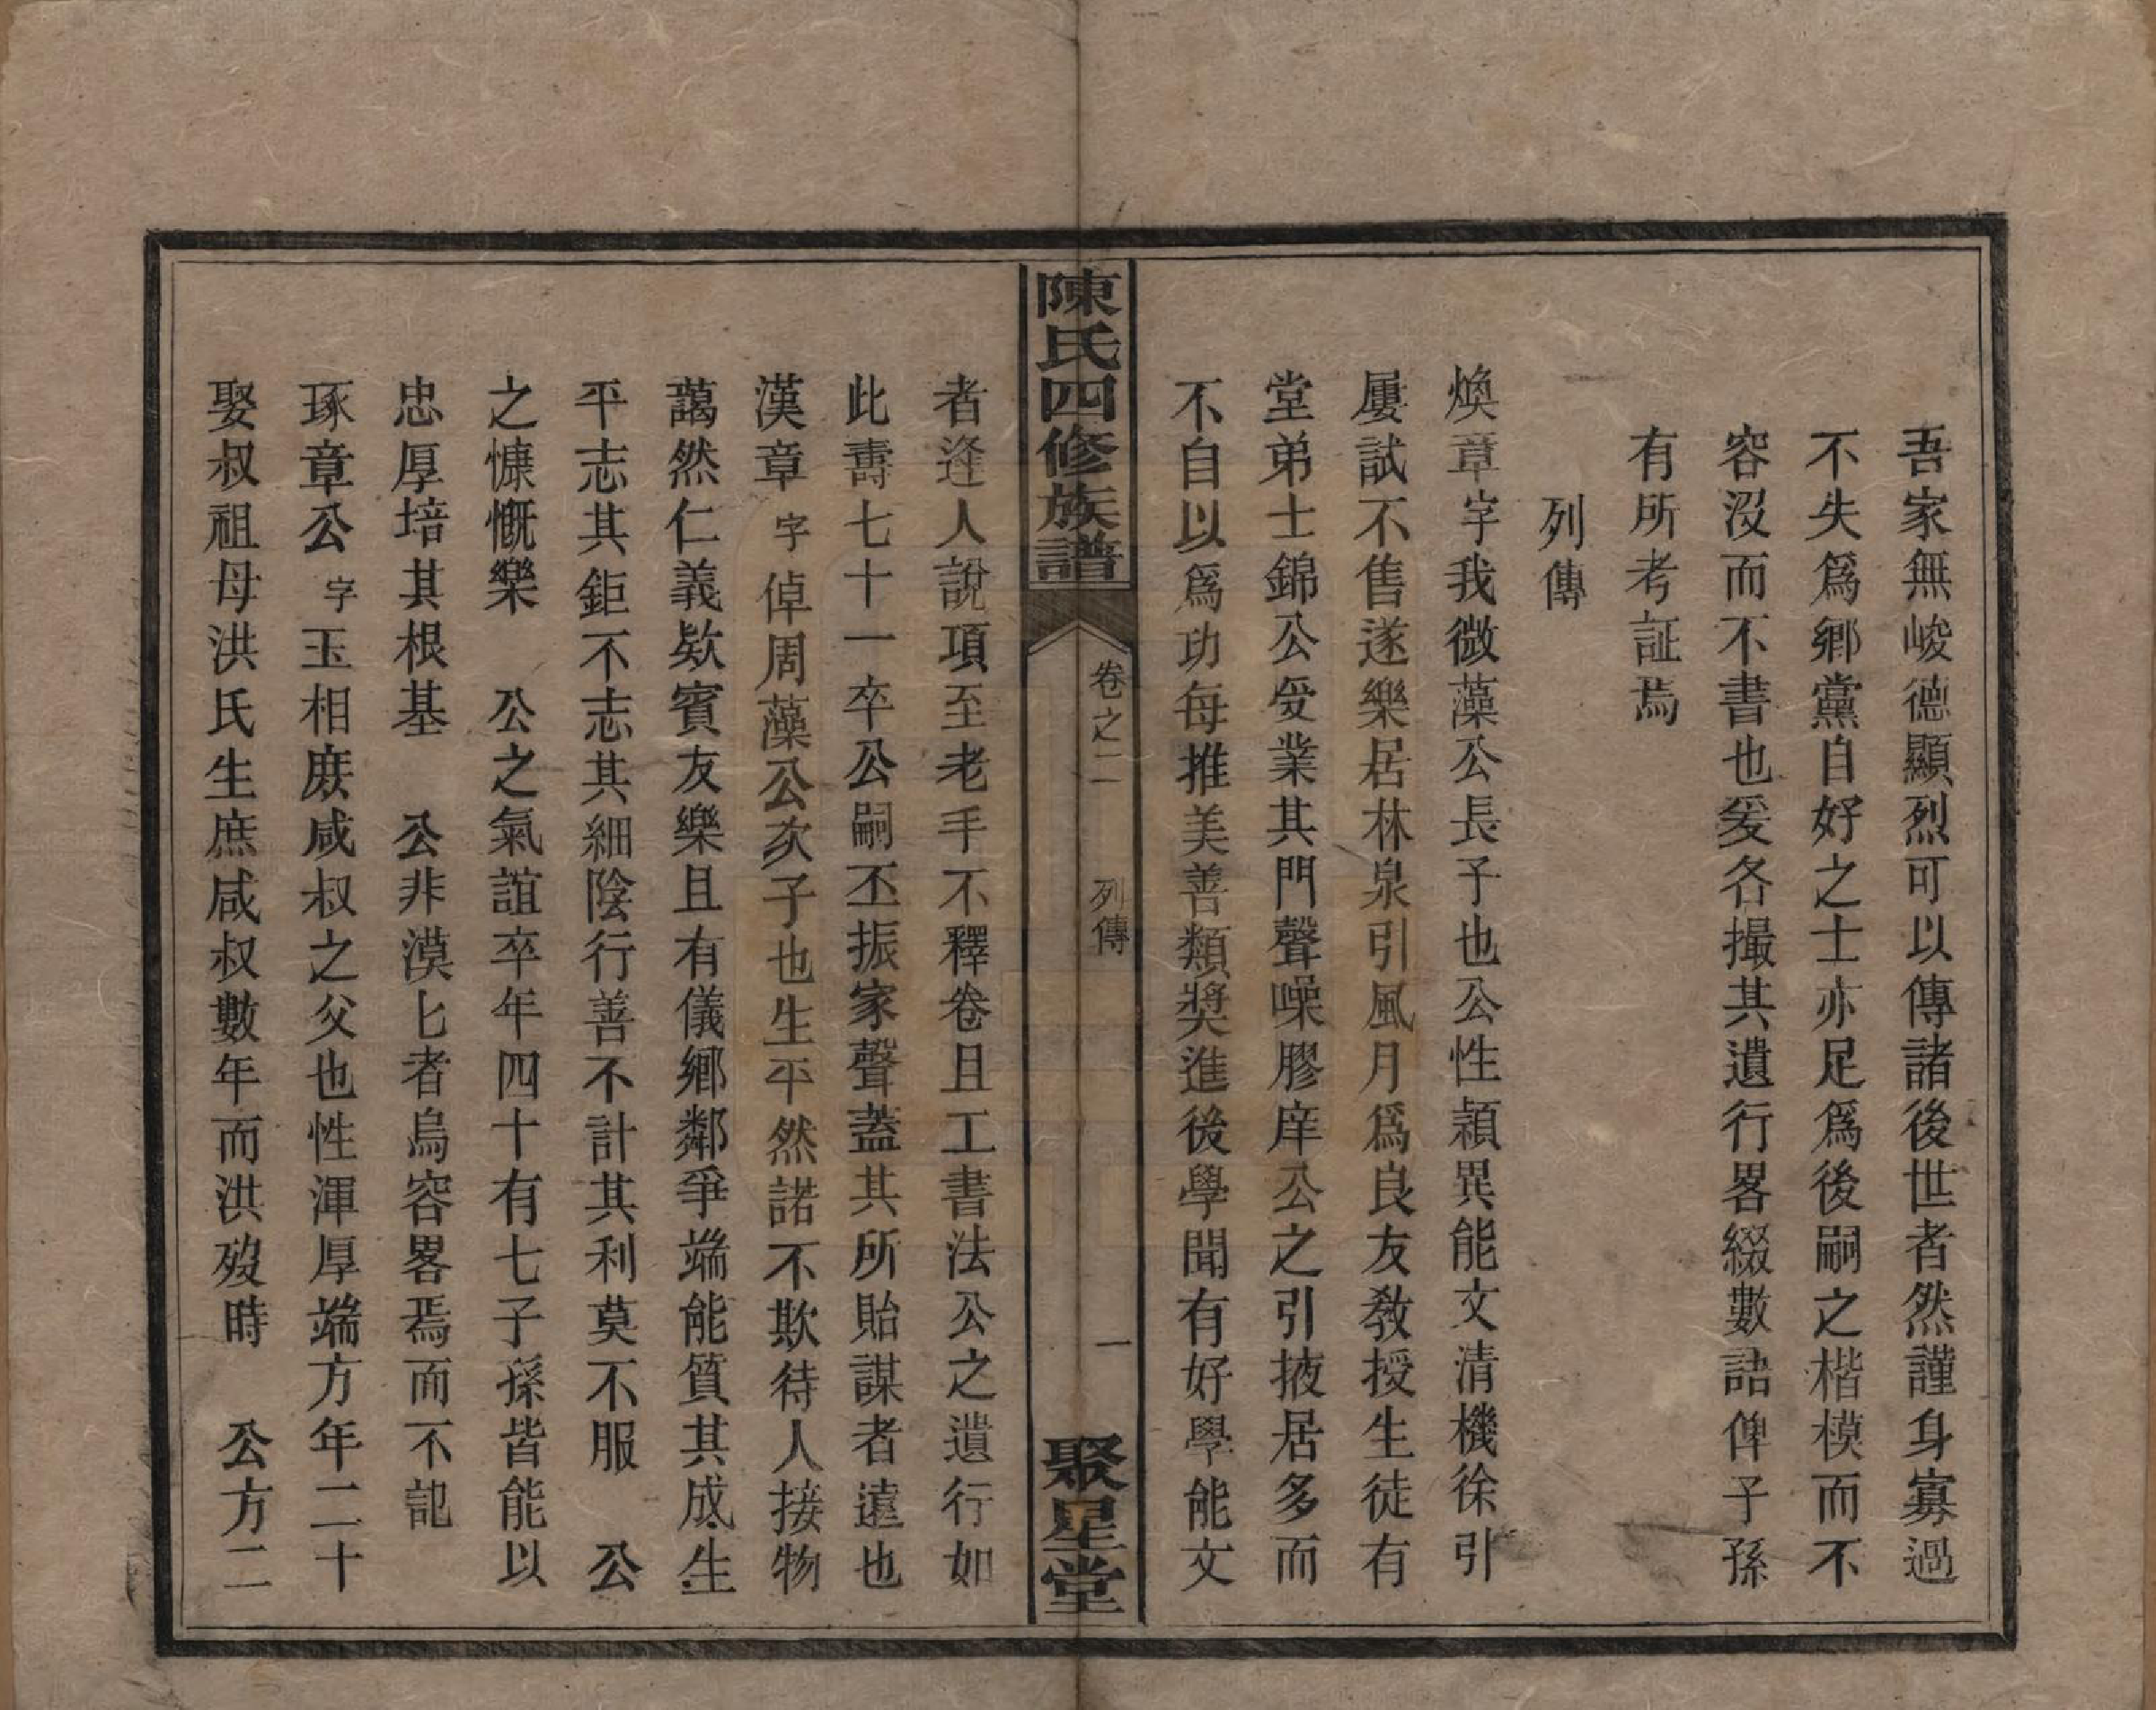 吾家無峻德顯烈可以傳諸後世者然謹身寡過
不失爲鄉黨自好之士亦足爲後嗣之楷模而不
容沒而不書也爰各撮其遺行畧綴數語俾子孫
有所考証焉
列傳
煥章字我微藻公長子也公性穎異能文清機徐引
屢試不售遂樂居林泉引風月爲良友教授生徒有
堂弟士錦公受業其門聲噪膠庠公之引掖居多而
不自以爲功每推美善類奬進後學聞有好學能文
陳氏四修族譜
卷之二
列傳
一
聚星堂
者逢人說項至老手不釋卷且工書法公之遺行如
此壽七十一卒公嗣丕振家聲蓋其所貽謀者遠也
漢章字倬周藻公次子也生平然諾不欺待人接物
藹然仁義欵賓友樂且有儀鄉鄰爭端能質其成生
平志其鉅不志其細陰行善不計其利莫不服　公
之慷慨樂　公之氣誼卒年四十有七子孫皆能以
忠厚培其根基　公非漠匕者烏容畧焉而不記
琢章公字玉相庻咸叔之父也性渾厚端方年二十
娶叔祖母洪氏生庶咸叔數年而洪歿時　公方二